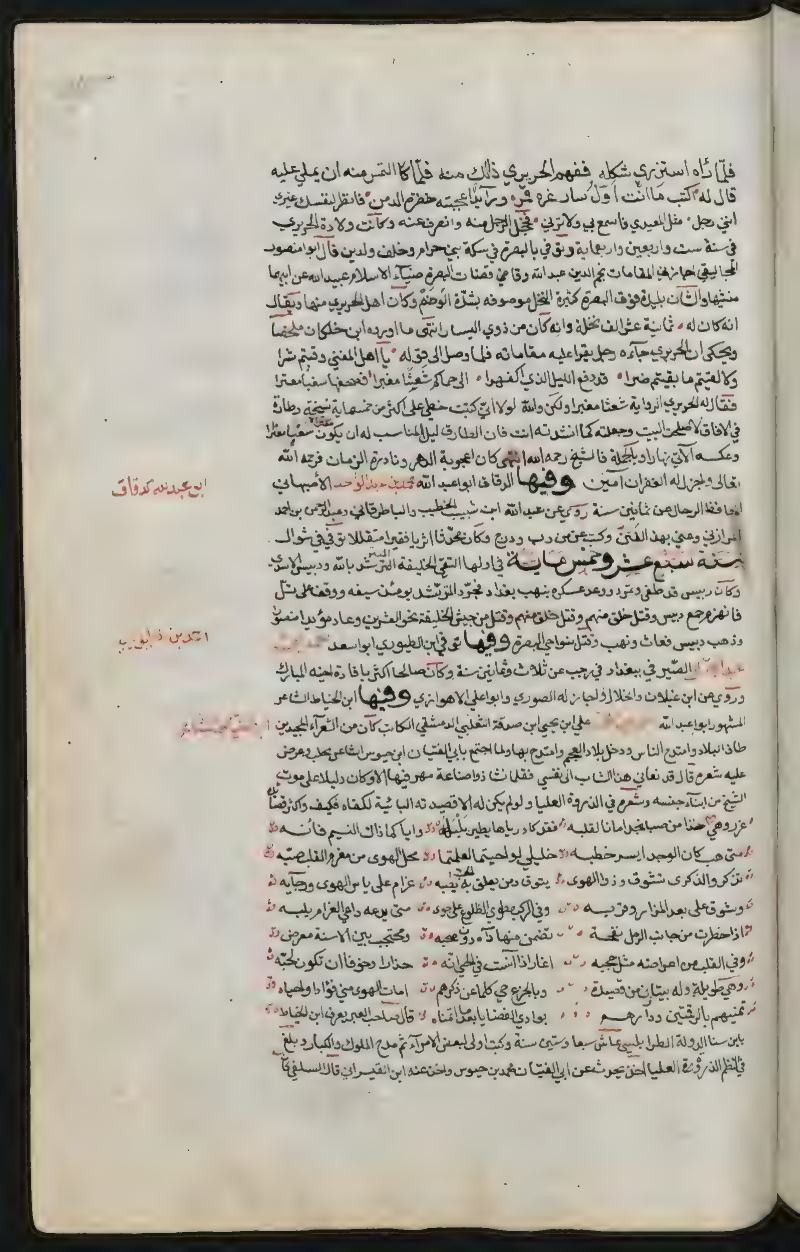 فلما رآه استزرى شكله ففهم الحريري ذلك منه فلما كا التمس منه ان يملي عليه
قال له اكتب ما انت اول سار غره قمر ورآئد اعجبته خضرة الدمن فانظر لنفسك غيري
انني رجل مثل المعيدي فاسمع بي ولا ترني فخجل الرجل منه وانصرف عنه وكانت ولادة الحريري
في سنة ست واربعين واربعماية وتوفي بالبصرة في سكة بني حرام وخلف ولدين قال ابو منصور
الجواليقي اجازني المقامات نجم الدين عبد الله وقاضي قضات البصرة ضياء الاسلام عبيد الله عن ابيهما
منشيها والشان بليدة فوق البصرة كثيرة النخل موصوفه بشدة الوخم وكان اهل الحريري منها ويقال
انه كان له ثمانية عشر الف نخلة وانه كان من ذوي اليسار انتهى ما اورده ابن خلكان ملخصا
ويحكى ان الحريري جآءه رجل يقرا عليه مقاماته فلما وصل الى قوله يا اهل المغنى وقيتم شرا
ولا لقيتم ما بقيتم ضرا قد دفع الليل الذي اكفهرا الى حماكم شعثا مغبرا فصحفها سغبا معترا
فقال له الحريري الرواية شعثا مغبرا ولكن والله لولا اني كتبت خطي على اكثر من خمسماية نسخة وطارت
في الافاق لاصلحت البيت وجعلته كما انشدته انت فان الطارق ليلا المناسب له ان يكون سغبا معترا
وعكسه الآتي نهارا وبالجملة فالشيخ رحمه الله انتهى كان اعجوبة الدهر ونادرة الزمان فرحمه الله
تعالى واجزل له الغفران آمين وفيها الدقاق ابو عبد الله محمد بن عبد الواحد الاصبهاني
ابن عبد الله كدقاق
الحافظ الرحال عن ثمانين سنة روى عن عبد الله ابن شبيب الخطيب والباطرقاني وعبد الرحمن بن احمد
الرازي وعني بهذا الفن وكتب عمن دب ودرج وكان محدثا اثريا فقيرا متقللا توفي في شوال
سنة سبع عشر وخمس ماية في اولها التقى الخليفة المسترشد بالله ودبيس الاسدي
وكان دبيس قد طغى وتمرد ووعد عسكره بنهب بغداد فجرد المسترشد يومئذ سيفه ووقف على تل
فانهزم جمع دبيس وقتل خلق منهم وقتل من جيش الخليفة نحو العشرين وعاد مؤيدا منصورا
وذهب دبيس فعاث ونهب وقتل بنواحي البصرة وفيها توفي ابن الطيوري ابو سعد احمد بن
احمد بن
عبد الجبار الصيرفي ببغداد في رجب عن ثلاث وثمانين سنة وكان صالحا اكثر بافادة اخيه المبارك
وروى عن ابن غيلان والخلال واجاز له الصوري وابو علي الاهوازي وفيها ابن الخياط الشاعر
المشهور ابو عبد الله علي ابن يحيى ابن صدقة التغلبي الدمشقي الكاتب كان من الشعرآء المجيدين
طاف البلاد وامتدح الناس ودخل بلاد العجم وامتدح بها ولما اجتمع بابي الفتيان ابن حيوس الشاعر بحلب وعرض
عليه شعره قال قد نعاني هذا الشاب الى نفسي فقلما نشا ذو صناعة مهر فيها الا وكان دليلا على موت
الشيخ من ابناء جنسه وشعره في الذروة العليا ولو لم يكن له الا قصيدته البائية لكفاه فكيف واكثر قصائده
غرر وهي خذا من صبا نجد امانا لقلبه فقد كاد رياها يطير بلبه واياكما ذاك النسيم فانه
متى هب كان الوجد ايسر خطبه خليلي لو احببتما لعلمتما محل الهوى من مغرم القلب صبه
تذكر والذكرى تشوق وذو الهوى يتوق ومن يعلق به الحب يصبه غرام على ياس الهوى ورجآيه
وشوق على بعد المزار وقربه وفي الركب مطوي الضلوع على جوى متى يدعه داعي الغرام يلبه
اذا خطرت من جانب الرمل نفحة تضمن منها دآه دون صحبه ومحتجب بين الاسنة معرض
وفي القلب من اعراضه مثل حجبه اغار اذا آنست في الحي انه حذارا وخوفا ان تكون لحبه
وهي طويلة وله بيتان من قصيدة وبالجزع حي كلما عن ذكرهم امات الهوى مني فؤادا واحياه
تمنيتهم بالرقمتين ودارهم بوادي الغضا يا بعد ما اتمناه قال صاحب العبر يعرف ابن الخياط
بابن سنا الدولة الطرابلسي عاش سبعا وستين سنة وكتب اولا لبعض الامرآء ثم مدح الملوك والكبار وبلغ
في النظم الذروة العليا اخذ يحدث عن ابي الفتيان محمد بن حيوس واخذ عنه ابن القيسراني قال السلفي كان